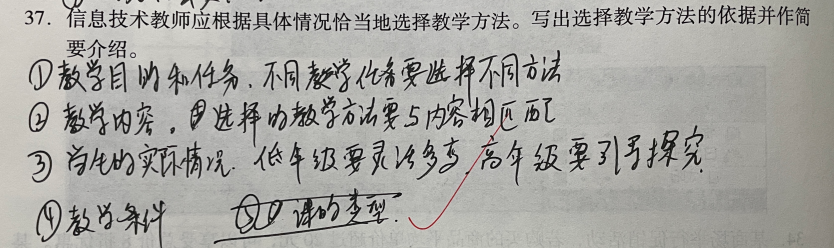 37. 信息技术教师应根据具体情况恰当地选择教学方法。写出选择教学方法的依据并作简
要介绍。
①教学目的和任务. 不同教学任务要选择不同方法
②教学内容。选择的教学方法要与内容相匹配
③学生的实际情况. 低年级要灵活多变,高年级要引导探究.
④教学条件 ⑤ 课的类型.